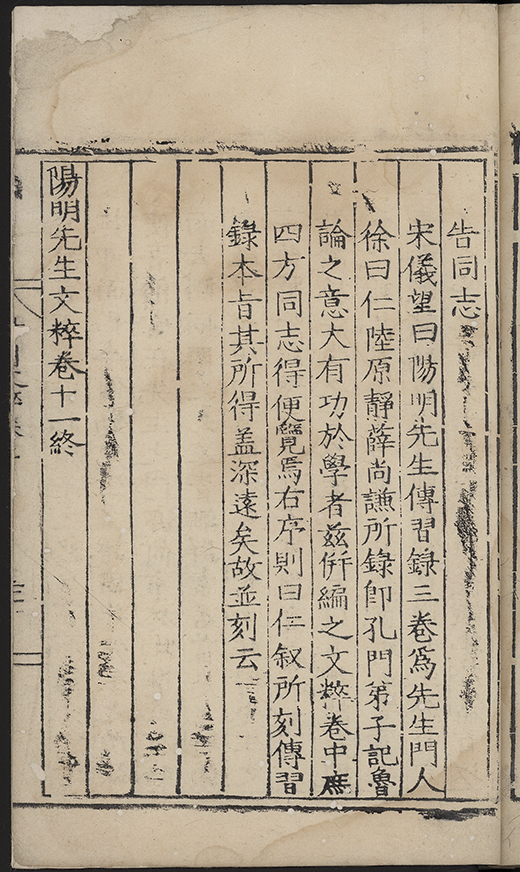 告同志
宋儀望曰陽明先生傳習錄三卷爲先生門人
徐曰仁陸原靜薛尚謙所錄即孔門弟子記魯
論之意大有功於學者兹併編之文粹卷中庶
四方同志得便覽焉右序則曰仁叙所刻傳習
錄本旨其所得盖深遠矣故並刻云
陽明先生文粹卷十一終